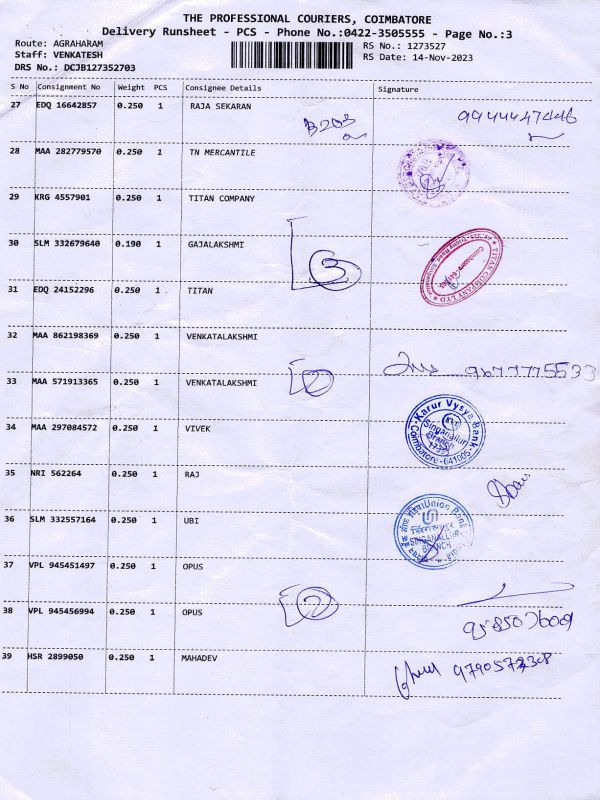 THE PROFESSIONAL COURIERS, COIMBATORE
Delivery Runsheet - PCS - Phone No.:0422-3505555 - Page No.:3
Route: AGRAHARAM
RS No.: 1273527
Staff: VENKATESH
RS Date: 14-Nov-2023
DRS No.: DCJB127352703
S No Consignment No Weight PCS Consignee Details Signature
27 EDQ 16642857 0.250 1 RAJA SEKARAN
B203
28 MAA 282779570 0.250 1 TN MERCANTILE
29 KRG 4557901 0.250 1 TITAN COMPANY
30 SLM 332679640 0.190 1 GAJALAKSHMI
3
TITAN COMPANY LTD
31 EDQ 24152296 0.250 1 TITAN
32 MAA 862198369 0.250 1 VENKATALAKSHMI
9677775533
33 MAA 571913365 0.250 1 VENKATALAKSHMI
2
34 MAA 297084572 0.250 1 VIVEK
Karur Vysya Bank
Singanallur
Branch
Coimbatore-641005
35 NRI 562264 0.250 1 RAJ
36 SLM 332557164 0.250 1 UBI
Union Bank
SINGANALLUR
BRANCH
37 VPL 945451497 0.250 1 OPUS
2
38 VPL 945456994 0.250 1 OPUS
39 HSR 2899050 0.250 1 MAHADEV